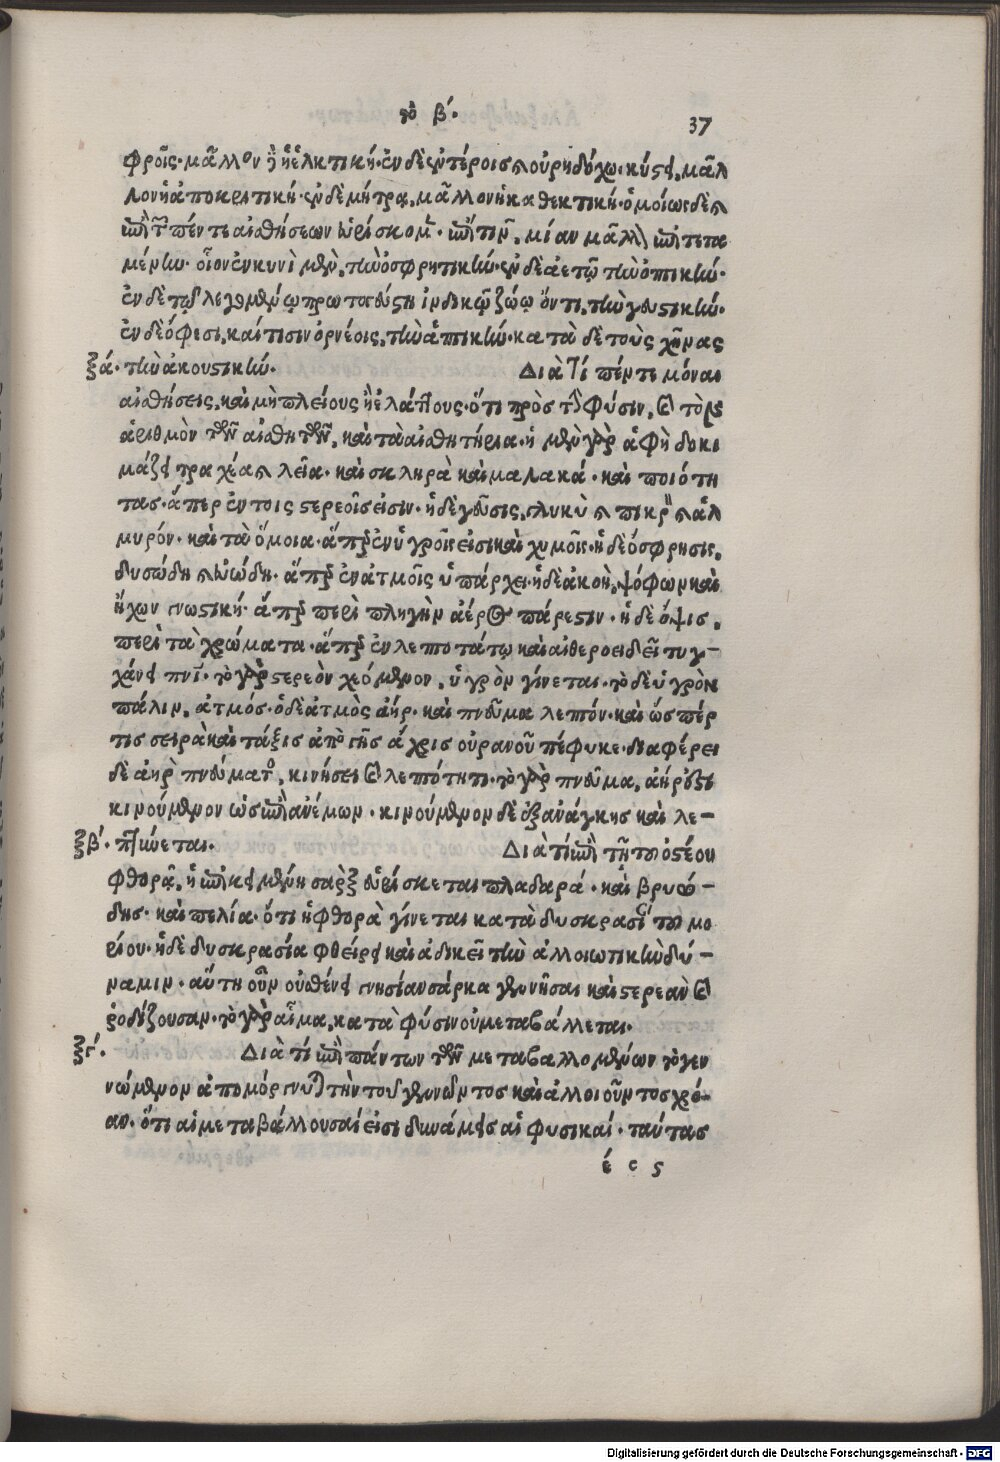 το β´.
37
φροῖς· μᾶλλον ἢ ἡ ἑλκτικὴ· ἐν δὲ ἐντέροις καὶ οὐρηδόχῳ κύστει, μᾶλ
λον ἡ ἀποκριτική· ἐν δὲ μήτρᾳ, μᾶλλον ἡ καθεκτική· ὁμοίως δὲ καὶ
ἐπὶ τῶν πέντε αἰσθήσεων εὑρίσκομεν· ἐπί τινων, μίαν μᾶλλον ἐπιτετα
μένην· οἷον ἐν κυνὶ μὲν, τὴν ὀσφρητικήν· ἐν δὲ ἀετῷ τὴν ὀπτικήν·
ἐν δὲ τῷ λεγομένῳ πρωτογεύστῃ ἰνδικῷ ζώῳ ὄντι, τὴν γευστικήν·
ἐν δὲ ὄφεσι, καί τισιν ὀρνέοις, τὴν ἁπτικήν· κατὰ δὲ τοὺς χῆνας
ξά· τὴν ἀκουστικήν. Διὰ τί πέντε μόναι
αἰσθήσεις, καὶ μὴ πλείους ἢ ἐλάττους· ὅτι πρὸς τὴν φύσιν, καὶ τὸν
ἀριθμὸν τῶν αἰσθητῶν, καὶ τὰ αἰσθητήρια· ἡ μὲν γὰρ ἁφὴ δοκι
μάζει τραχέα καὶ λεῖα· καὶ σκληρὰ καὶ μαλακά· καὶ ποιότη
τας· ἅπερ ἐν τοῖς στερεοῖς εἰσιν· ἡ δὲ γεῦσις, γλυκὺ καὶ πικρὸν καὶ ἁλ
μυρόν· καὶ τὰ ὅμοια· ἅπερ ἐν ὑγροῖς εἰσι καὶ χυμοῖς· ἡ δὲ ὄσφρησις,
δυσώδη καὶ εὐώδη· ἅπερ ἐν ἀτμοῖς ὑπάρχει· ἡ δὲ ἀκοὴ, ψόφων καὶ
ἤχων γνωστική· ἅπερ περὶ πληγὴν ἀέρος πάρεστιν· ἡ δὲ ὄψις,
περὶ τὰ χρώματα· ἅπερ ἐν λεπτοτάτῳ καὶ αἰθεροειδεῖ τυγ-
χάνει πνεύματι· τὸ γὰρ στερεὸν χεόμενον, ὑγρὸν γίνεται· τὸ δὲ ὑγρὸν
πάλιν, ἀτμός· ὁ δὲ ἀτμὸς ἀήρ· καὶ πνεῦμα λεπτόν· καὶ ὥσπερ
τις σειρὰ καὶ τάξις ἀπὸ γῆς ἄχρις οὐρανοῦ πέφυκε· διαφέρει
δὲ ἀὴρ πνεύματος, κινήσει καὶ λεπτότητι· τὸ γὰρ πνεῦμα, ἀήρ ἐστι
κινούμενον ὡς ἐπὶ ἀνέμων· κινούμενον δὲ ἐξ ἀνάγκης καὶ λε-
ξβ´· πτύνεται. Διὰ τί ἐπὶ τῇ τοῦ ὀστέου
φθορᾷ, ἡ ἐπικειμένη σὰρξ εὑρίσκεται πλαδαρά· καὶ βρυώ-
δης· καὶ πελία· ὅτι ἡ φθορὰ γίνεται κατὰ δυσκρασίαν τοῦ μο
ρίου· ἡ δὲ δυσκρασία φθείρει καὶ ἀδικεῖ τὴν ἀλλοιωτικὴν δύ-
ναμιν· αὕτη οὖν οὐ σθένει γνησίαν σάρκα γεννῆσαι καὶ στερεὰν καὶ
ῥοδίζουσαν· τὸ γὰρ αἷμα, κατὰ φύσιν οὐ μεταβάλλεται.
ξγ´. Διὰ τί ἐπὶ πάντων τῶν μεταβαλλομένων τὸ γεν
νώμενον ἀπομόργνυται τὴν τοῦ γεννῶντος καὶ ἀλλοιοῦντος χρό-
αν· ὅτι αἱ μεταβάλλουσαί εἰσι δυνάμεις αἱ φυσικαί· ταύτας
έ ς ς
Digitalisierung gefördert durch die Deutsche Forschungsgemeinschaft - DFG